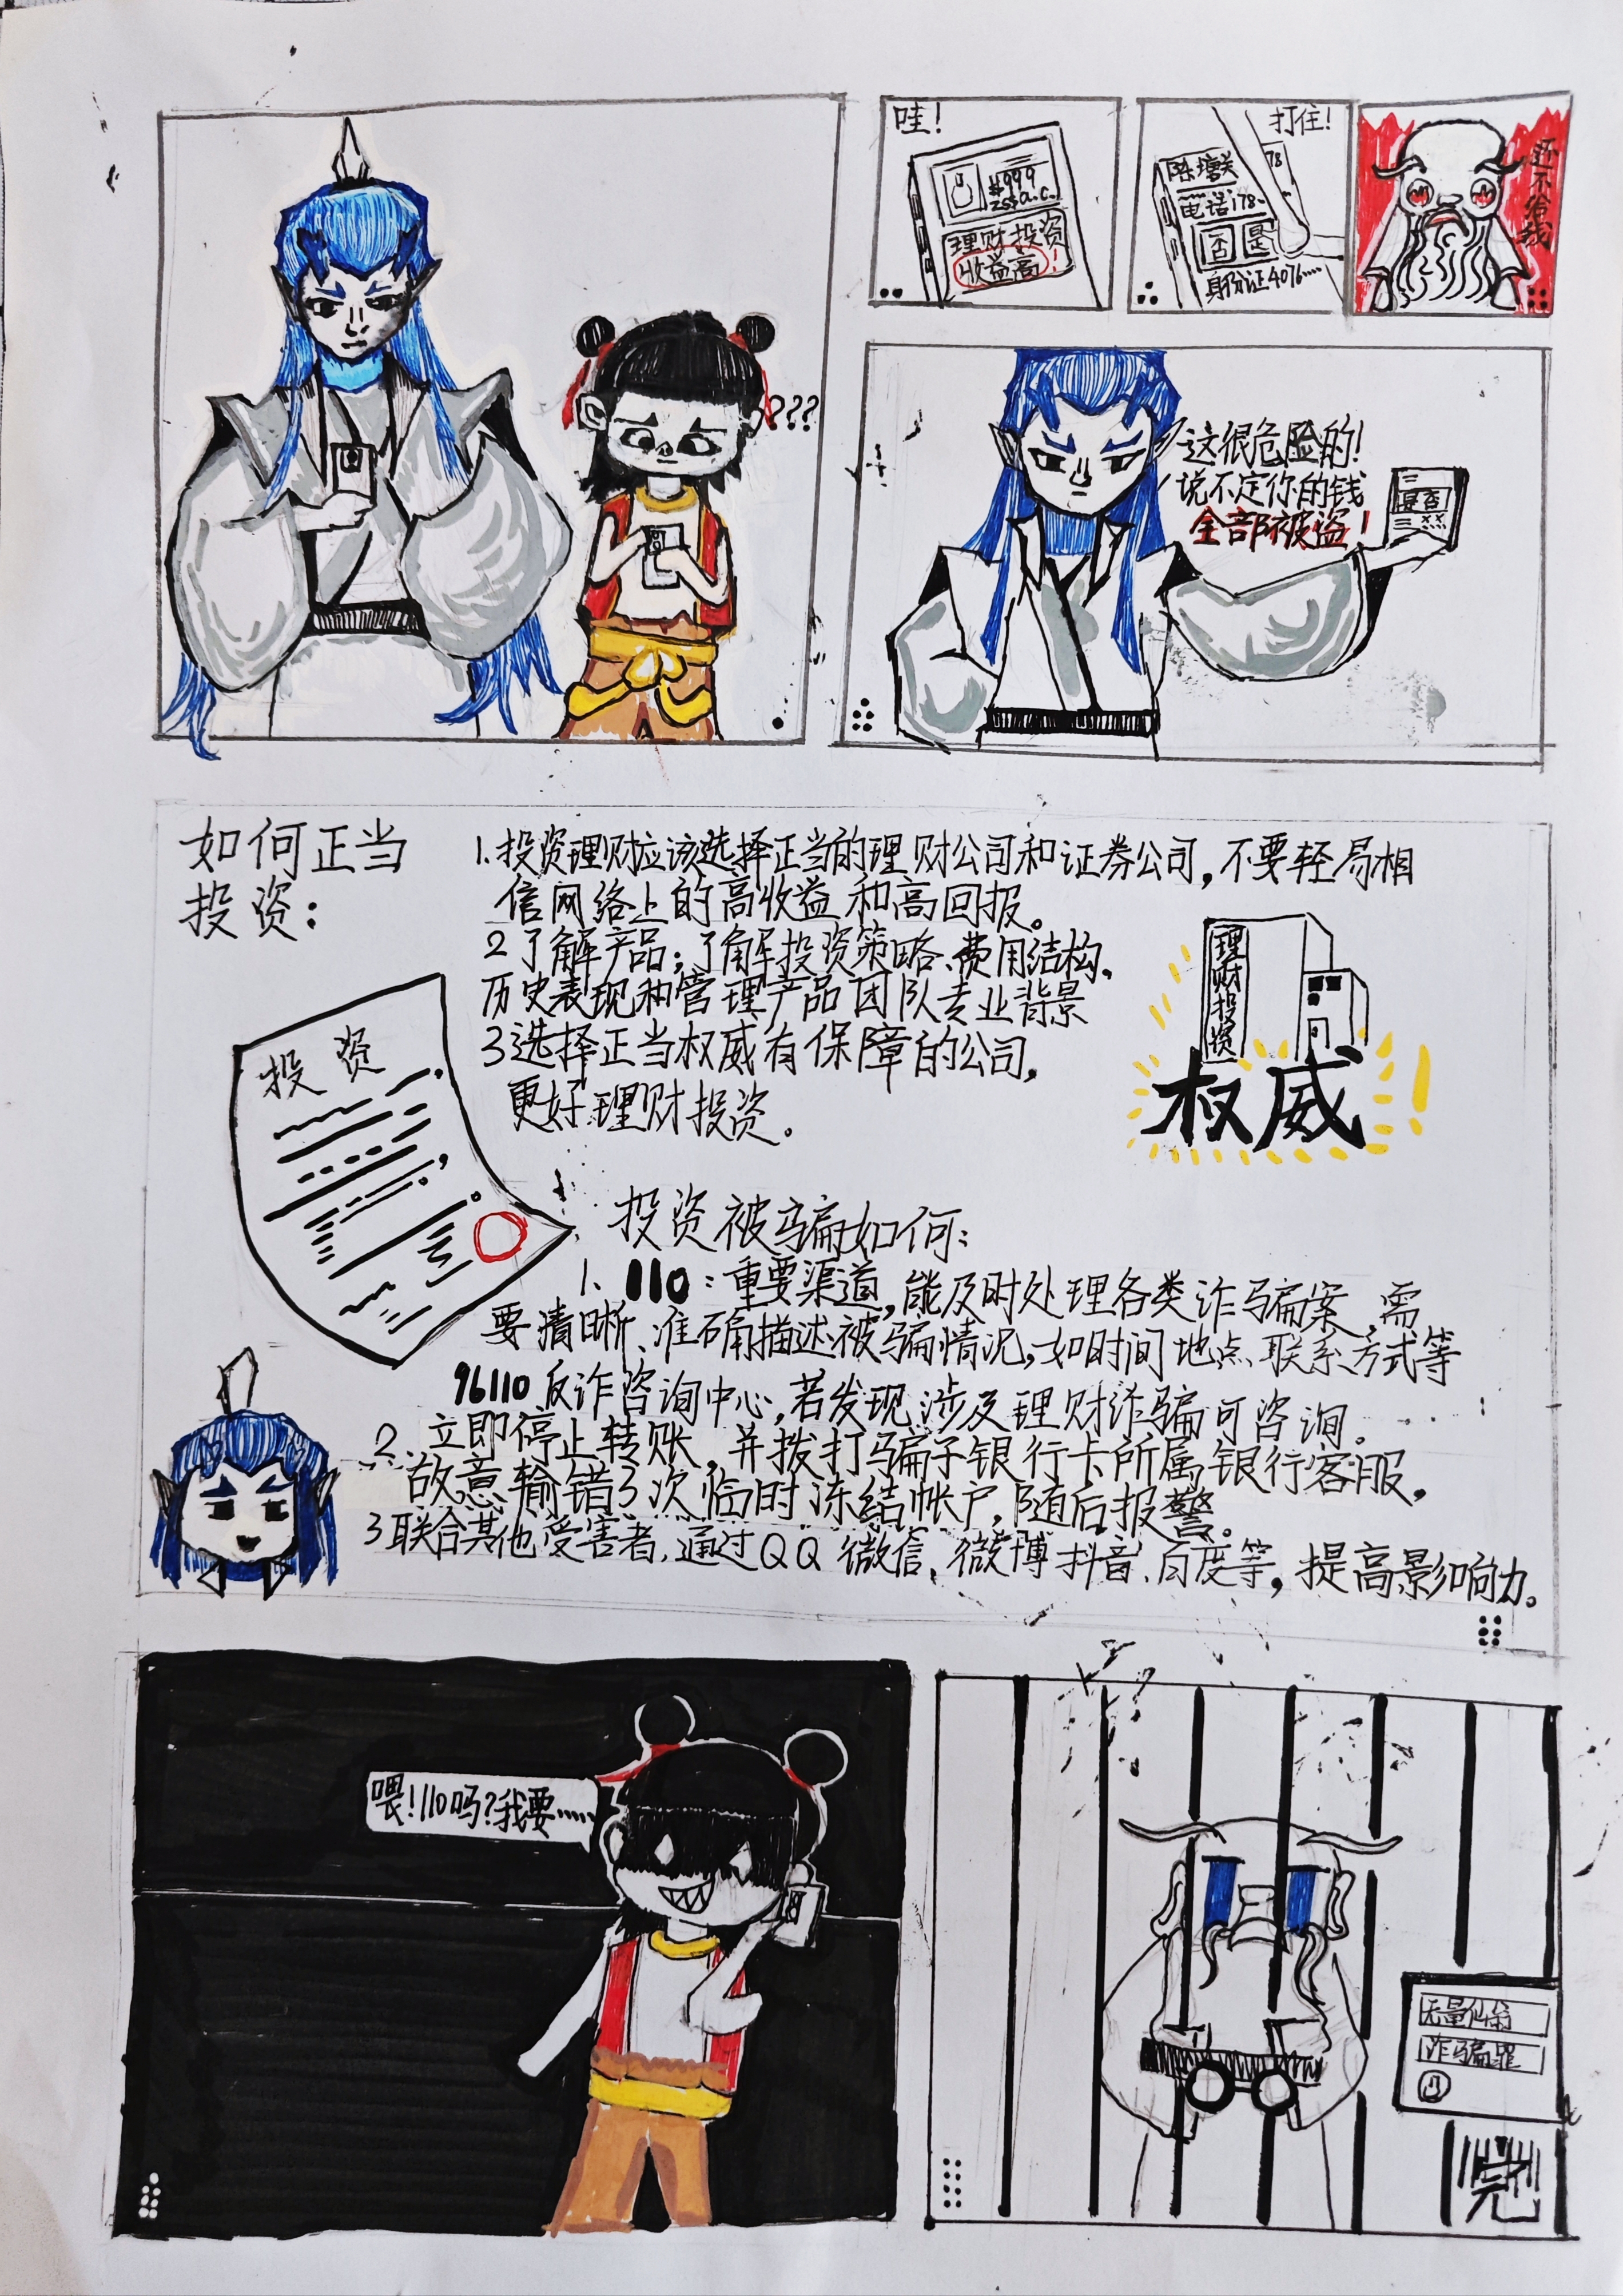 ???
哇!
#999
理财投资
收益高!
打住!
陈塘关
电话178-
否 是
身份证4076……
还不给钱
这很危险的!
说不定你的钱
全部被盗!
是否
如何正当
投资:
1.投资理财应该选择正当的理财公司和证券公司,不要轻易相
信网络上的高收益和高回报。
2了解产品;了解投资策略、费用结构,
历史表现和管理产品团队专业背景
3选择正当权威有保障的公司,
更好理财投资。
投资
理财投资
权威!
投资被骗如何:
1、110:重要渠道,能及时处理各类诈骗案,需
要清晰、准确描述被骗情况,如时间地点、联系方式等
96110反诈咨询中心,若发现涉及理财诈骗可咨询。
2、立即停止转账,并拨打骗子银行卡所属银行客服,
故意输错3次临时冻结帐户,随后报警。
3联合其他受害者,通过QQ微信、微博抖音、百度等,提高影响力。
喂!110吗?我要……
无量仙翁
诈骗罪
完